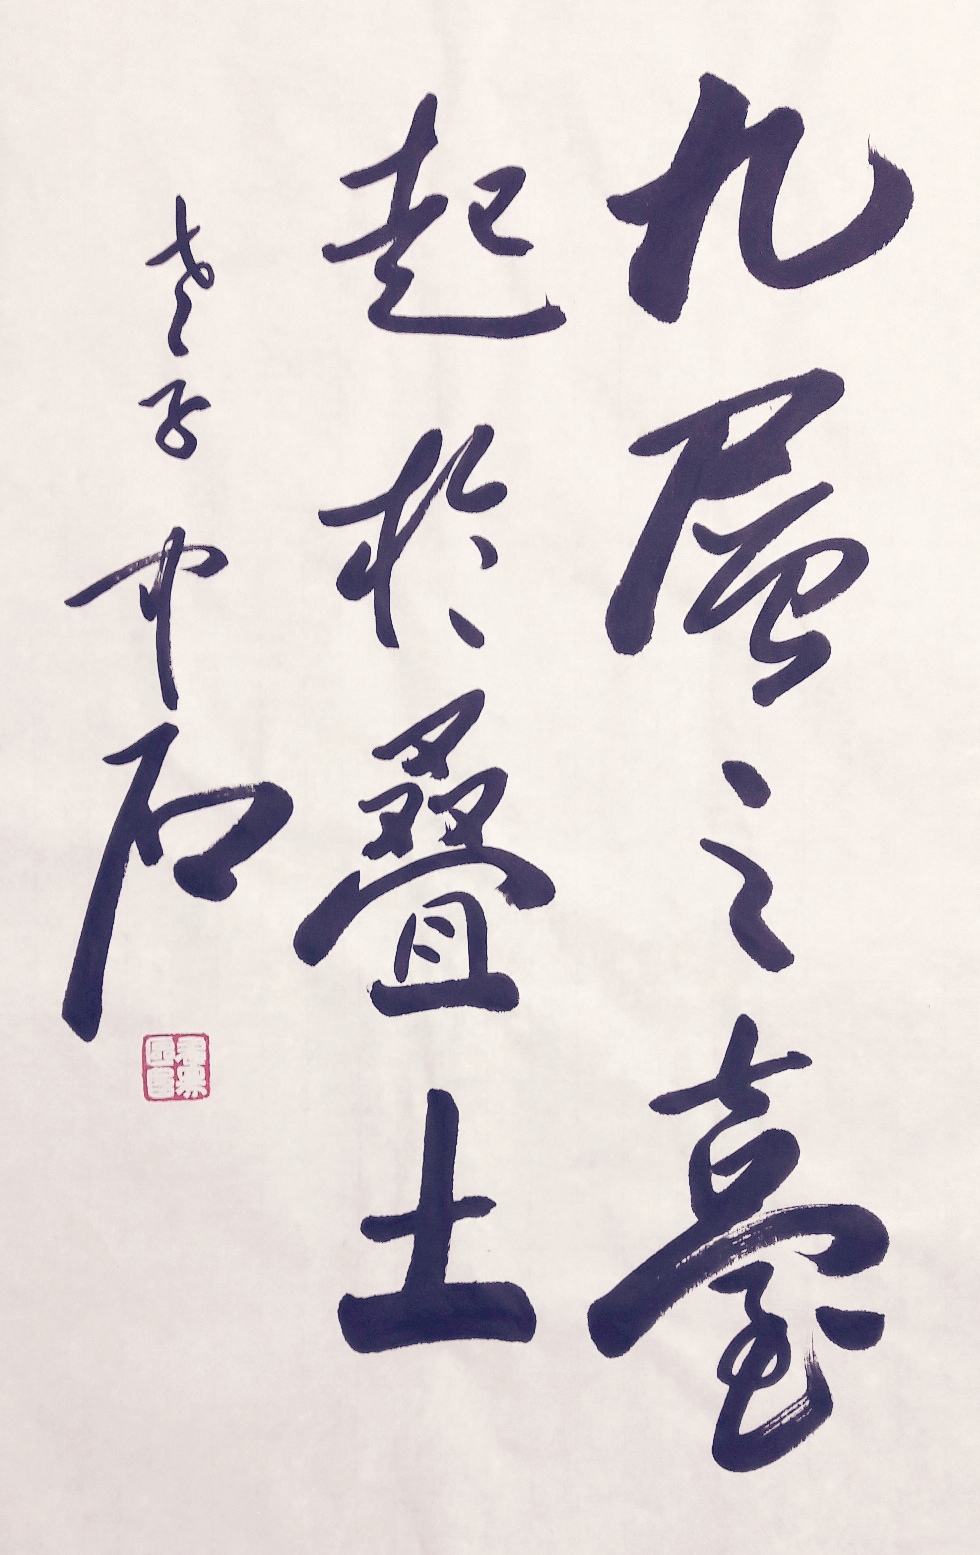 九層之臺
起於疊土
老子 中石